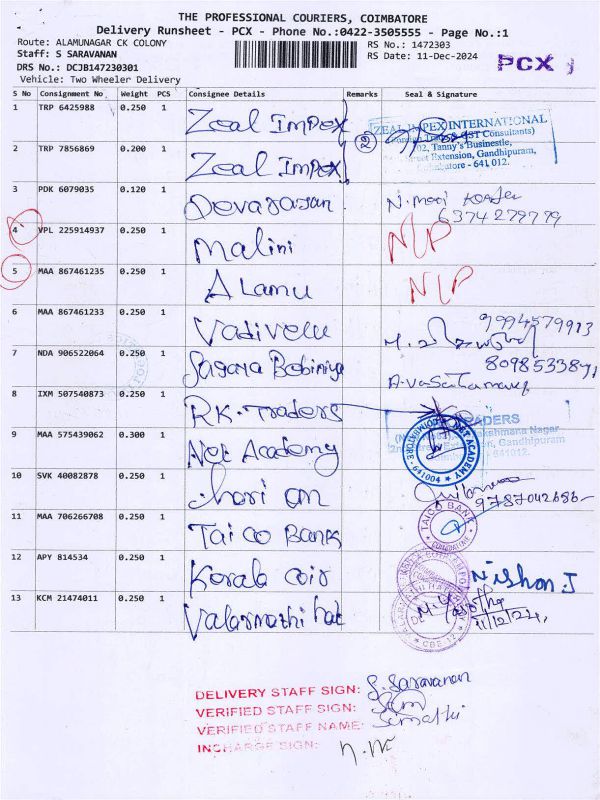 THE PROFESSIONAL COURIERS, COIMBATORE
Delivery Runsheet - PCX - Phone No.:0422-3505555 - Page No.:1
Route: ALAMUNAGAR CK COLONY
RS No.: 1472303
Staff: S SARAVANAN
RS Date: 11-Dec-2024
PCX
DRS No.: DCJB147230301
Vehicle: Two Wheeler Delivery
S No Consignment No Weight PCS Consignee Details Remarks Seal & Signature
1 TRP 6425988 0.250 1 Zeal Impex
ZEAL IMPEX INTERNATIONAL
GST Consultants)
02, Tanny's Businestle,
Street Extension, Gandhipuram,
Coimbatore - 641 012.
2 TRP 7856869 0.200 1 Zeal Impex
3 PDK 6079035 0.120 1 Devarajan N.
6374279779
4 VPL 225914937 0.250 1 Malini N/P
5 MAA 867461235 0.250 1 ALamu N/P
6 MAA 867461233 0.250 1 Vadivelu 9994579913
7 NDA 906522064 0.250 1 Sagana
8 IXM 507540873 0.250 1 RK. Traders
TRADERS
Lakshmana Nagar
Extension, Gandhipuram
641012.
9 MAA 575439062 0.300 1 Net Academy
NET ACADEMY
COIMBATORE - 641004
10 SVK 40082878 0.250 1
9787042686
11 MAA 706266708 0.250 1 Taico Bank
TAICO BANK
COIMBATORE
12 APY 814534 0.250 1 Kerala coir Nishan J
13 KCM 21474011 0.250 1 Valarmathi
11/12/24
CBE-12
DELIVERY STAFF SIGN: S. Saravanan
VERIFIED STAFF SIGN:
VERIFIED STAFF NAME: Sumathi
INCHARGE SIGN: